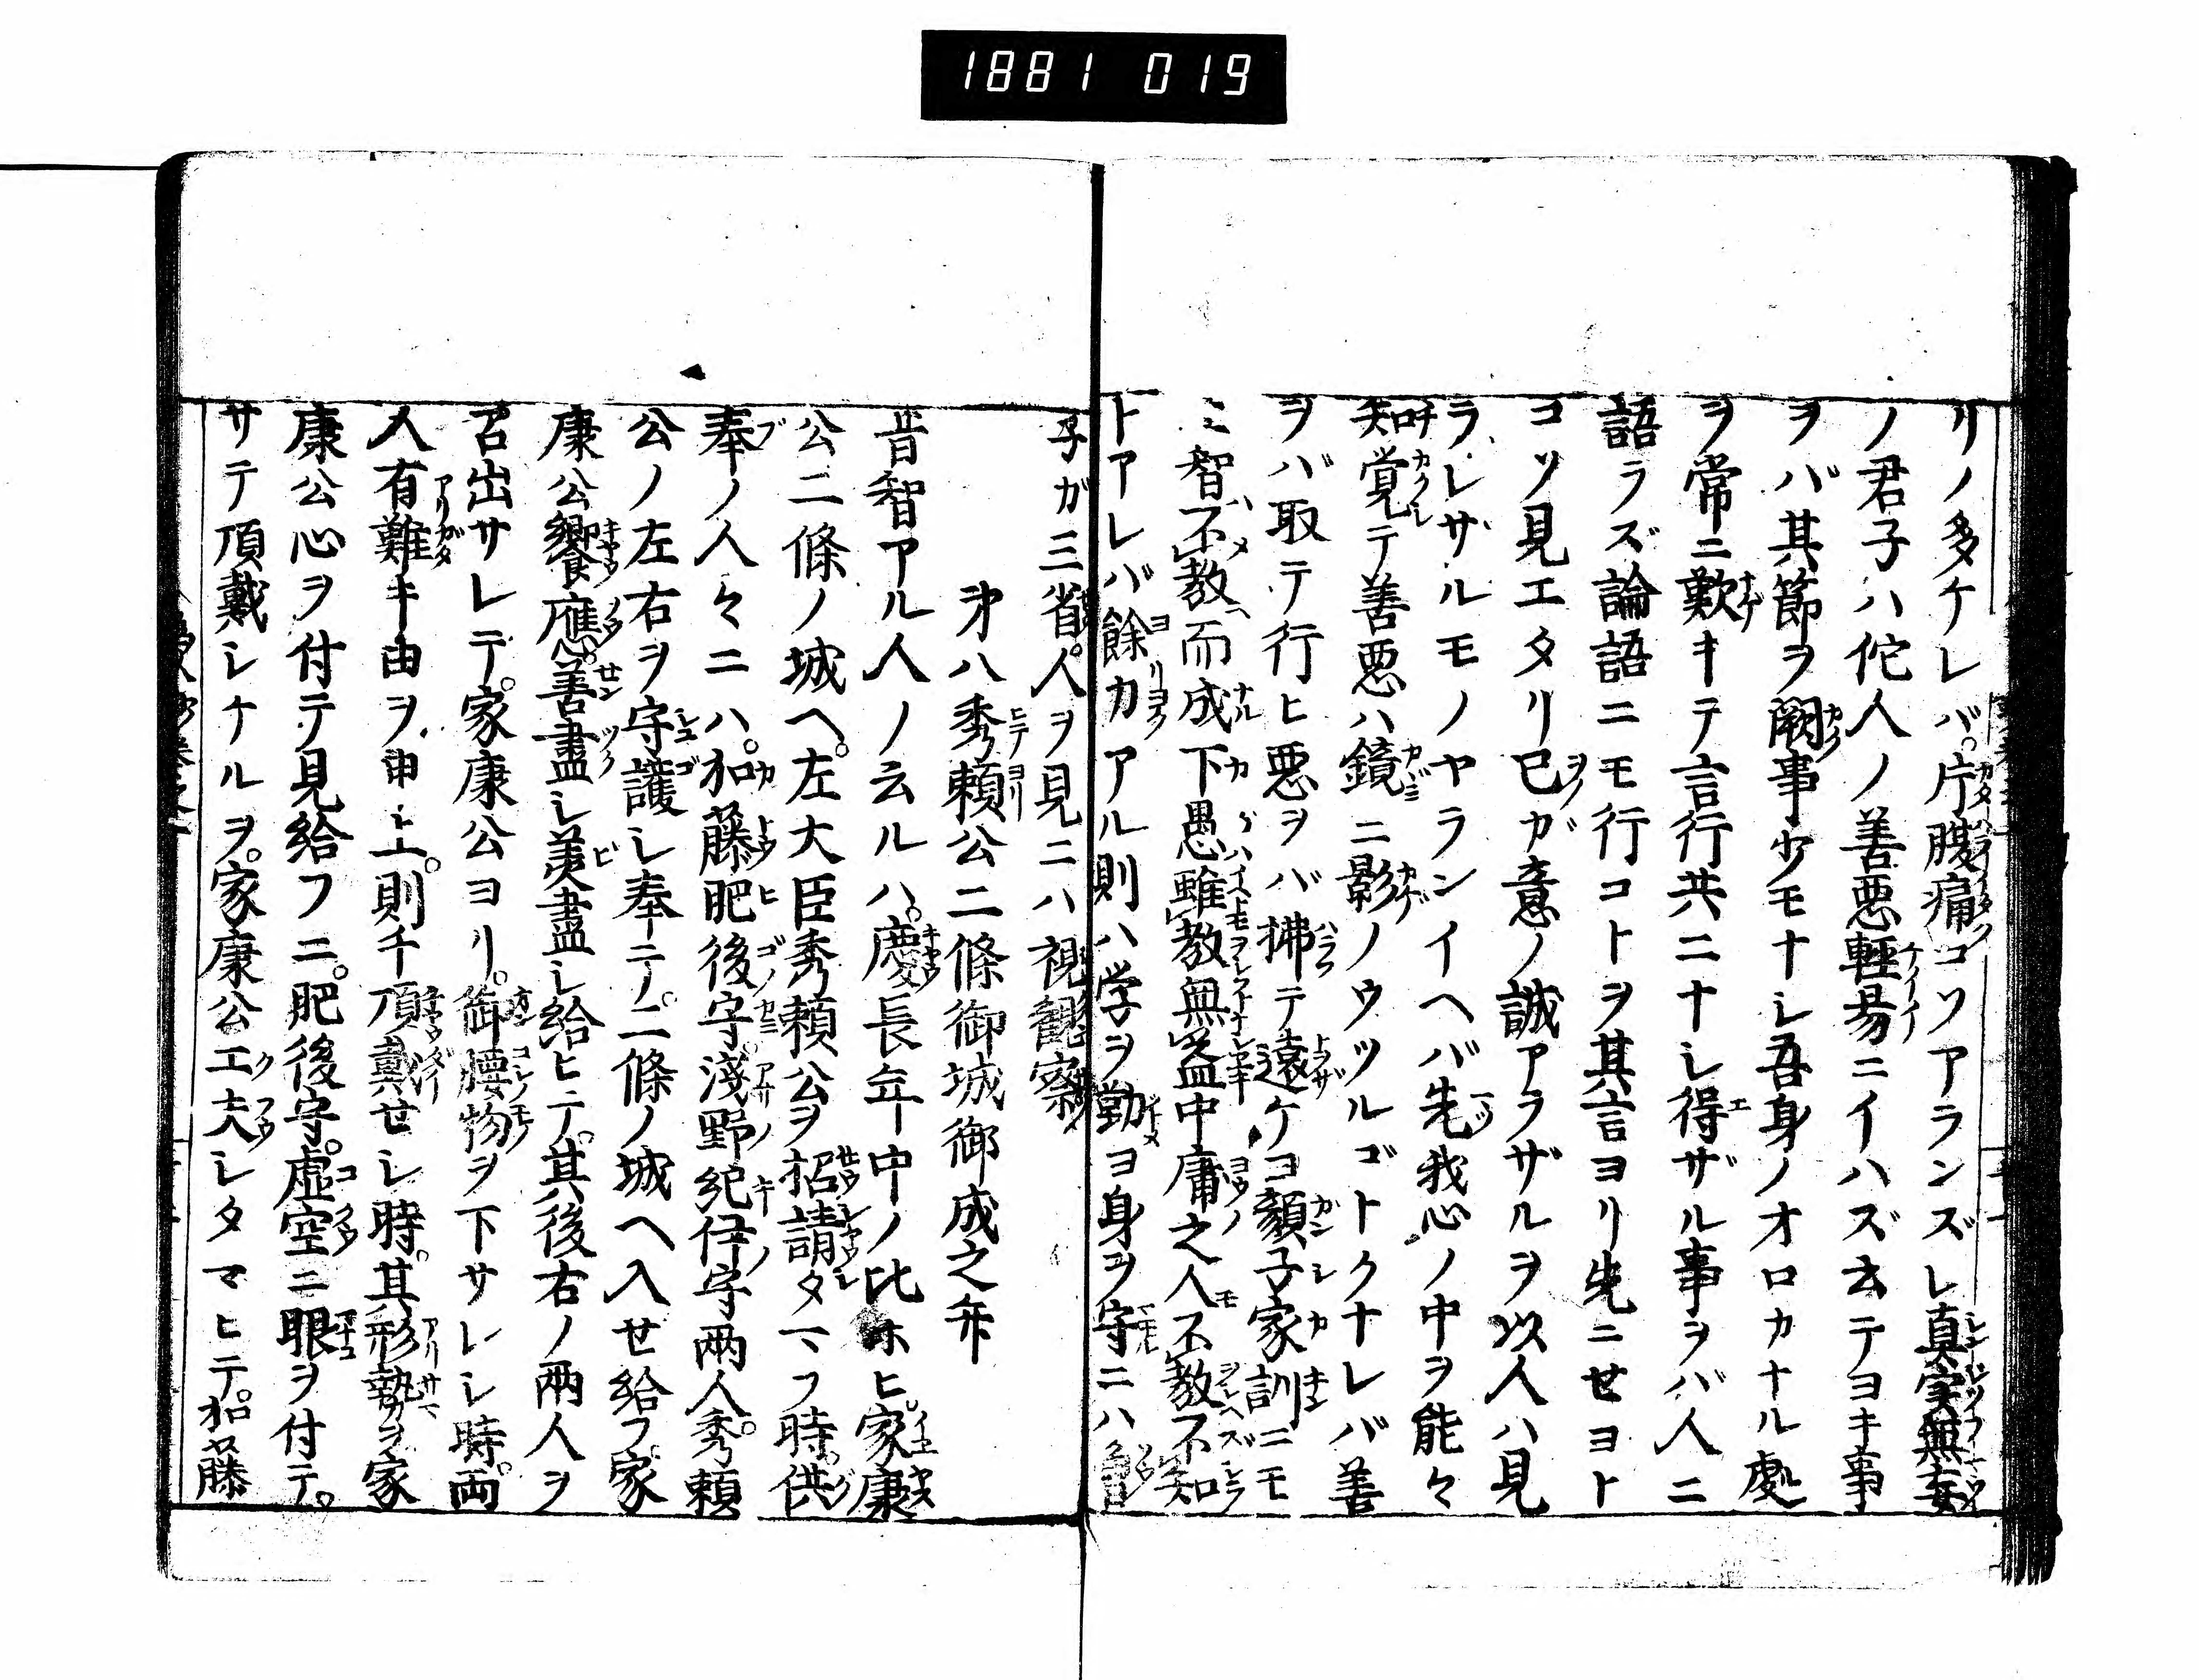 1881 019
リノ多ケレバ。片腹痛コソアランズレ真実無妄
ノ君子ハ佗人ノ善悪輕易ニイハズ去テヨキ事
ヲバ其節ヲ闕事少モナシ吾身ノオロカナル處
ヲ常ニ歎キテ言行共ニナシ得ザル事ヲバ人ニ
語ラズ論語ニモ行コトヲ其言ヨリ先ニセヨト
コソ見エタリ已ガ意ノ誠アラザルヲ以人ハ見
ラレザルモノヤランイヘバ先我心ノ中ヲ能々
知覚テ善悪ハ鏡ニ影ノウツルゴトクナレバ善
ヲバ取テ行ヒ悪ヲバ拂テ遠ケヨ顔子家訓ニモ
上智不教而成下愚雖教無益中庸之人不教不知
トアレバ餘力アル則ハ学ヲ勤ヨ身ヲ守ニハ曾
子ガ三省。人ヲ見ニハ視観察
㐧八秀頼公二條御城御成之弁
昔智アル人ノ云ルハ。慶長年中ノ比ホヒ。家康
公二條ノ城ヘ。左大臣秀頼公ヲ招請タマフ時。供
奉ノ人々ニハ。加藤肥後守。淺野紀伊守両人。秀頼
公ノ左右ヲ守護シ奉テ。二條ノ城ヘ入セ給フ。家
康公饗應。善盡シ美盡シ給ヒテ。其後右ノ両人ヲ
召出サレテ。家康公ヨリ。御腰物ヲ下サレシ時。両
人有難キ由ヲ申上。則チ頂戴セシ時。其形勢ヲ家
康公心ヲ付テ見給フニ。肥後守。虚空ニ眼ヲ付テ。
サテ頂戴シケルヲ。家康公工夫シタマヒテ。加藤